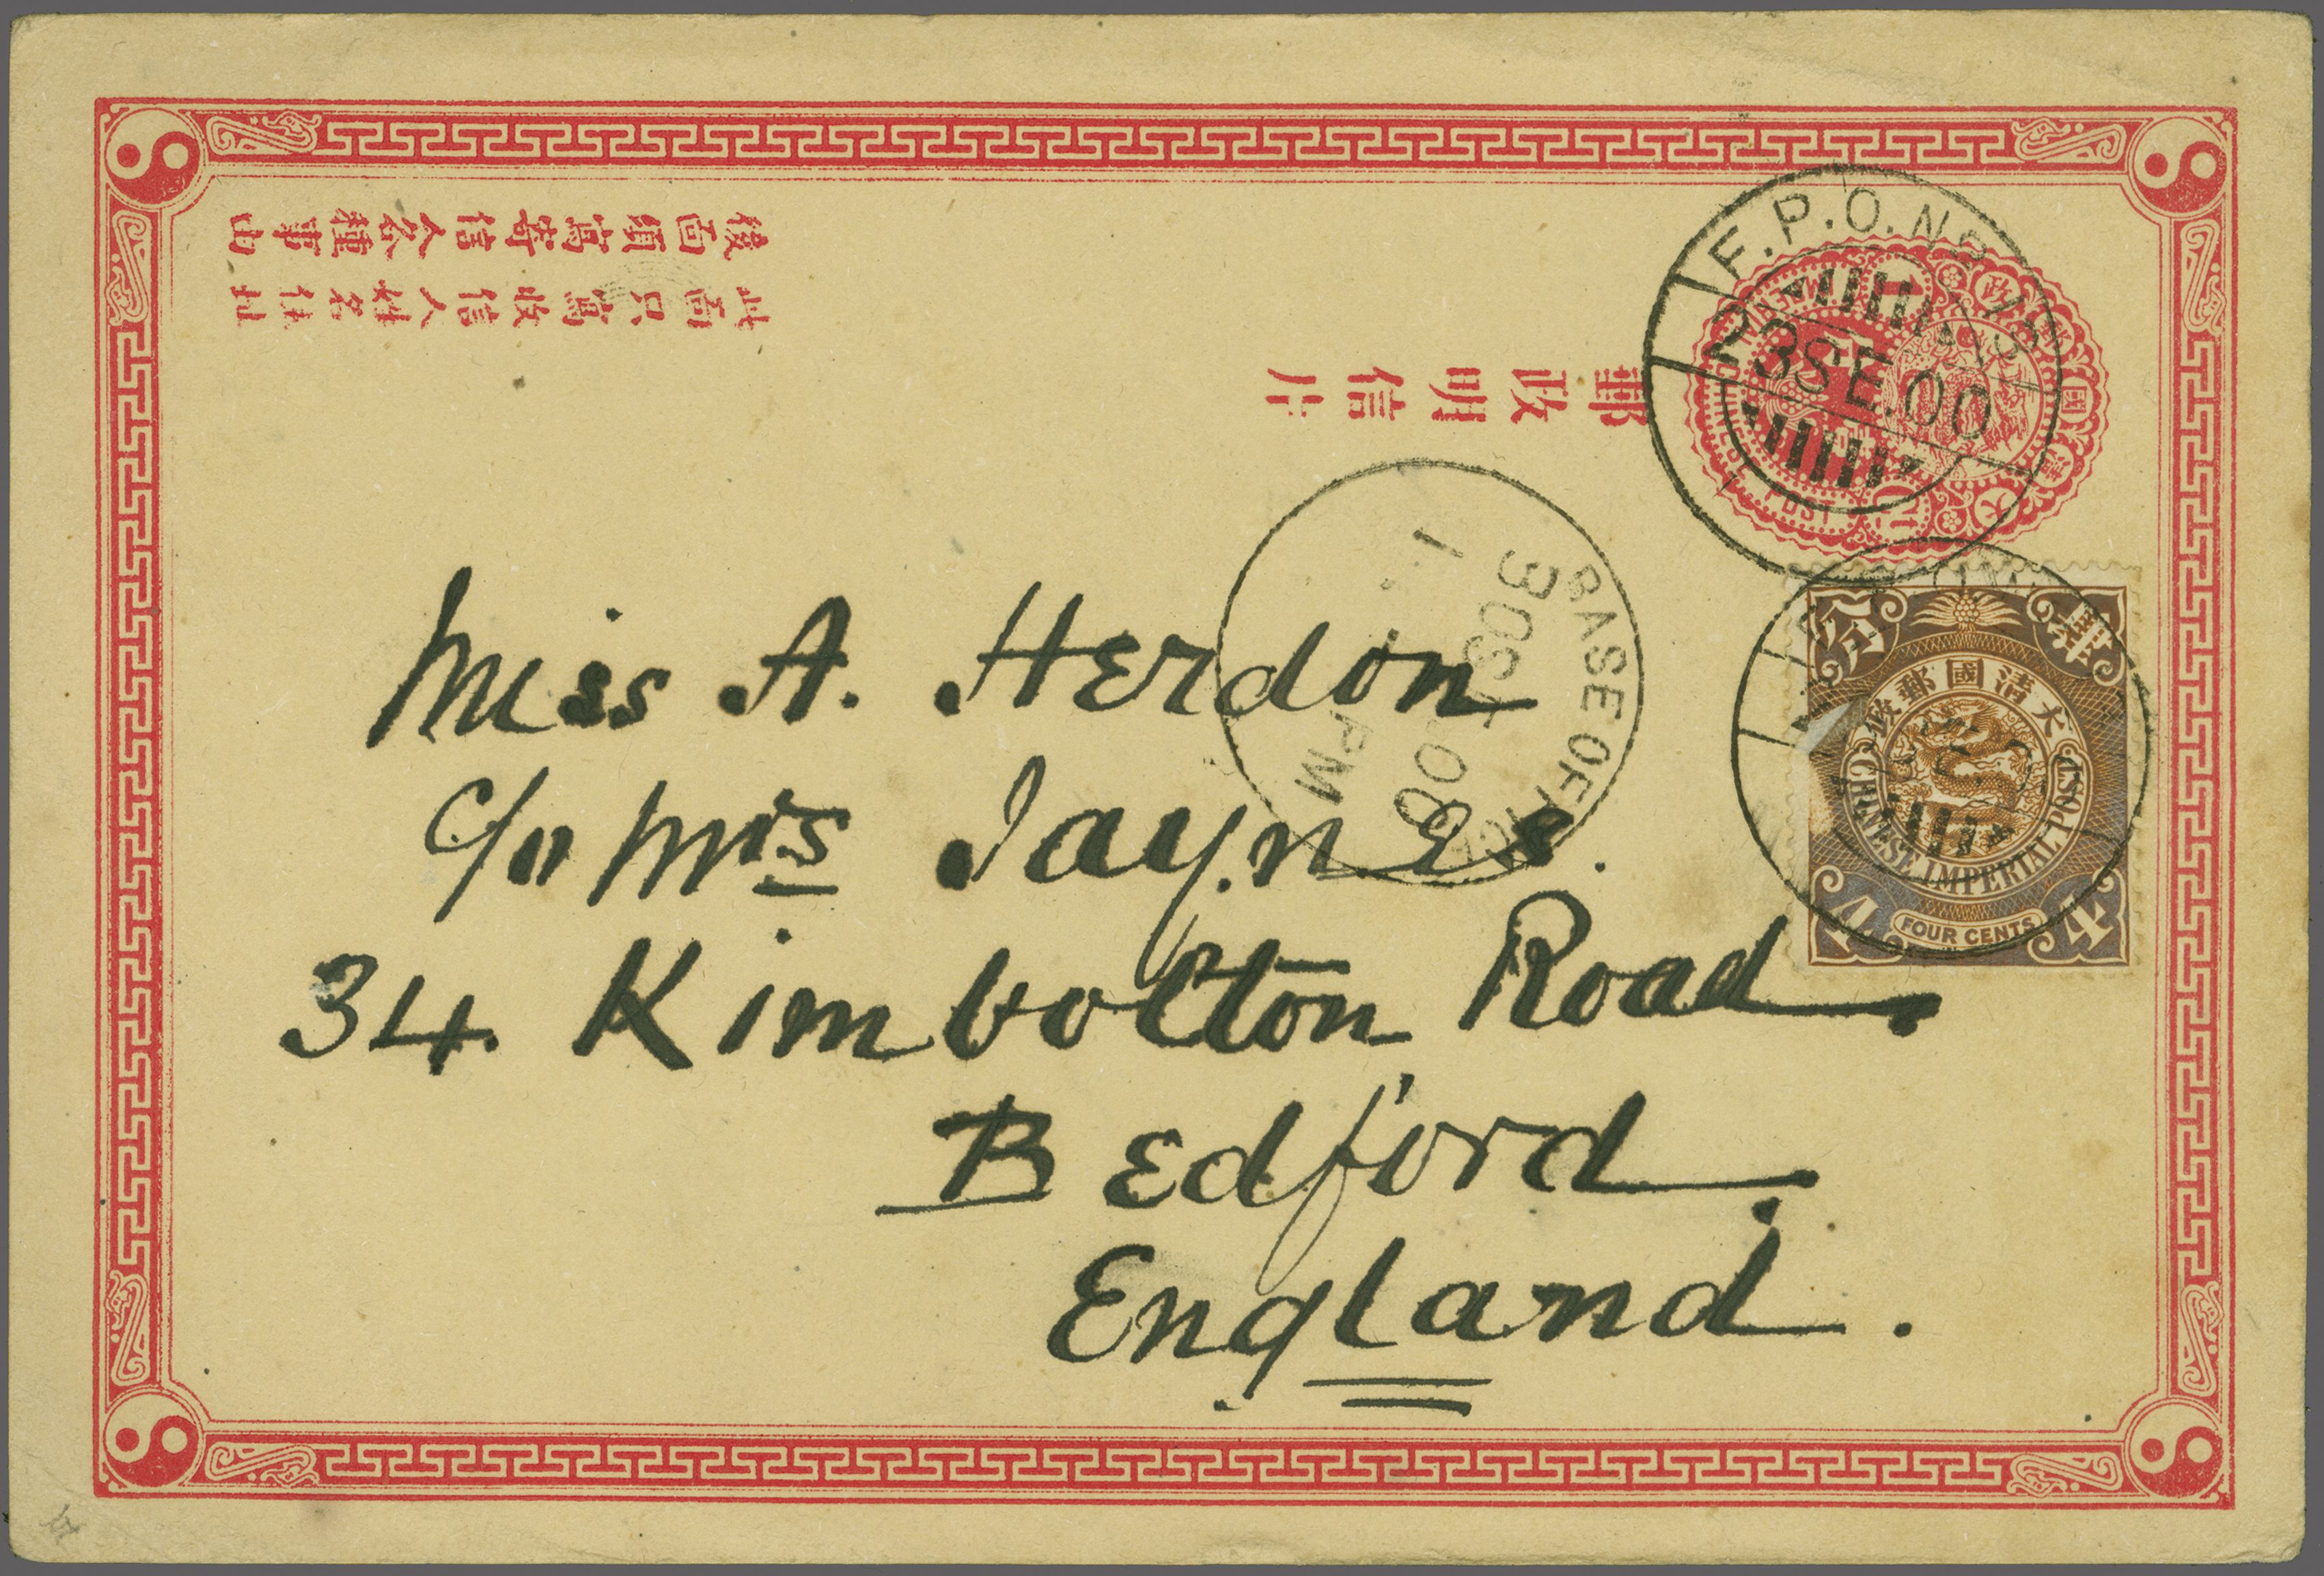 此面只寫收信人姓名住址
後面須寫寄信人各種事由
郵政明信片
F.P.O. NO
23 SE. 00
大清國郵政
BASE OFFICE
1 PM
30 SE 00
分 肆
大清國郵政
CHINESE IMPERIAL POST
4 FOUR CENTS 4
Miss A. Herdon
C/o Mrs Jaynes.
34. Kimbolton Road
Bedford
England.